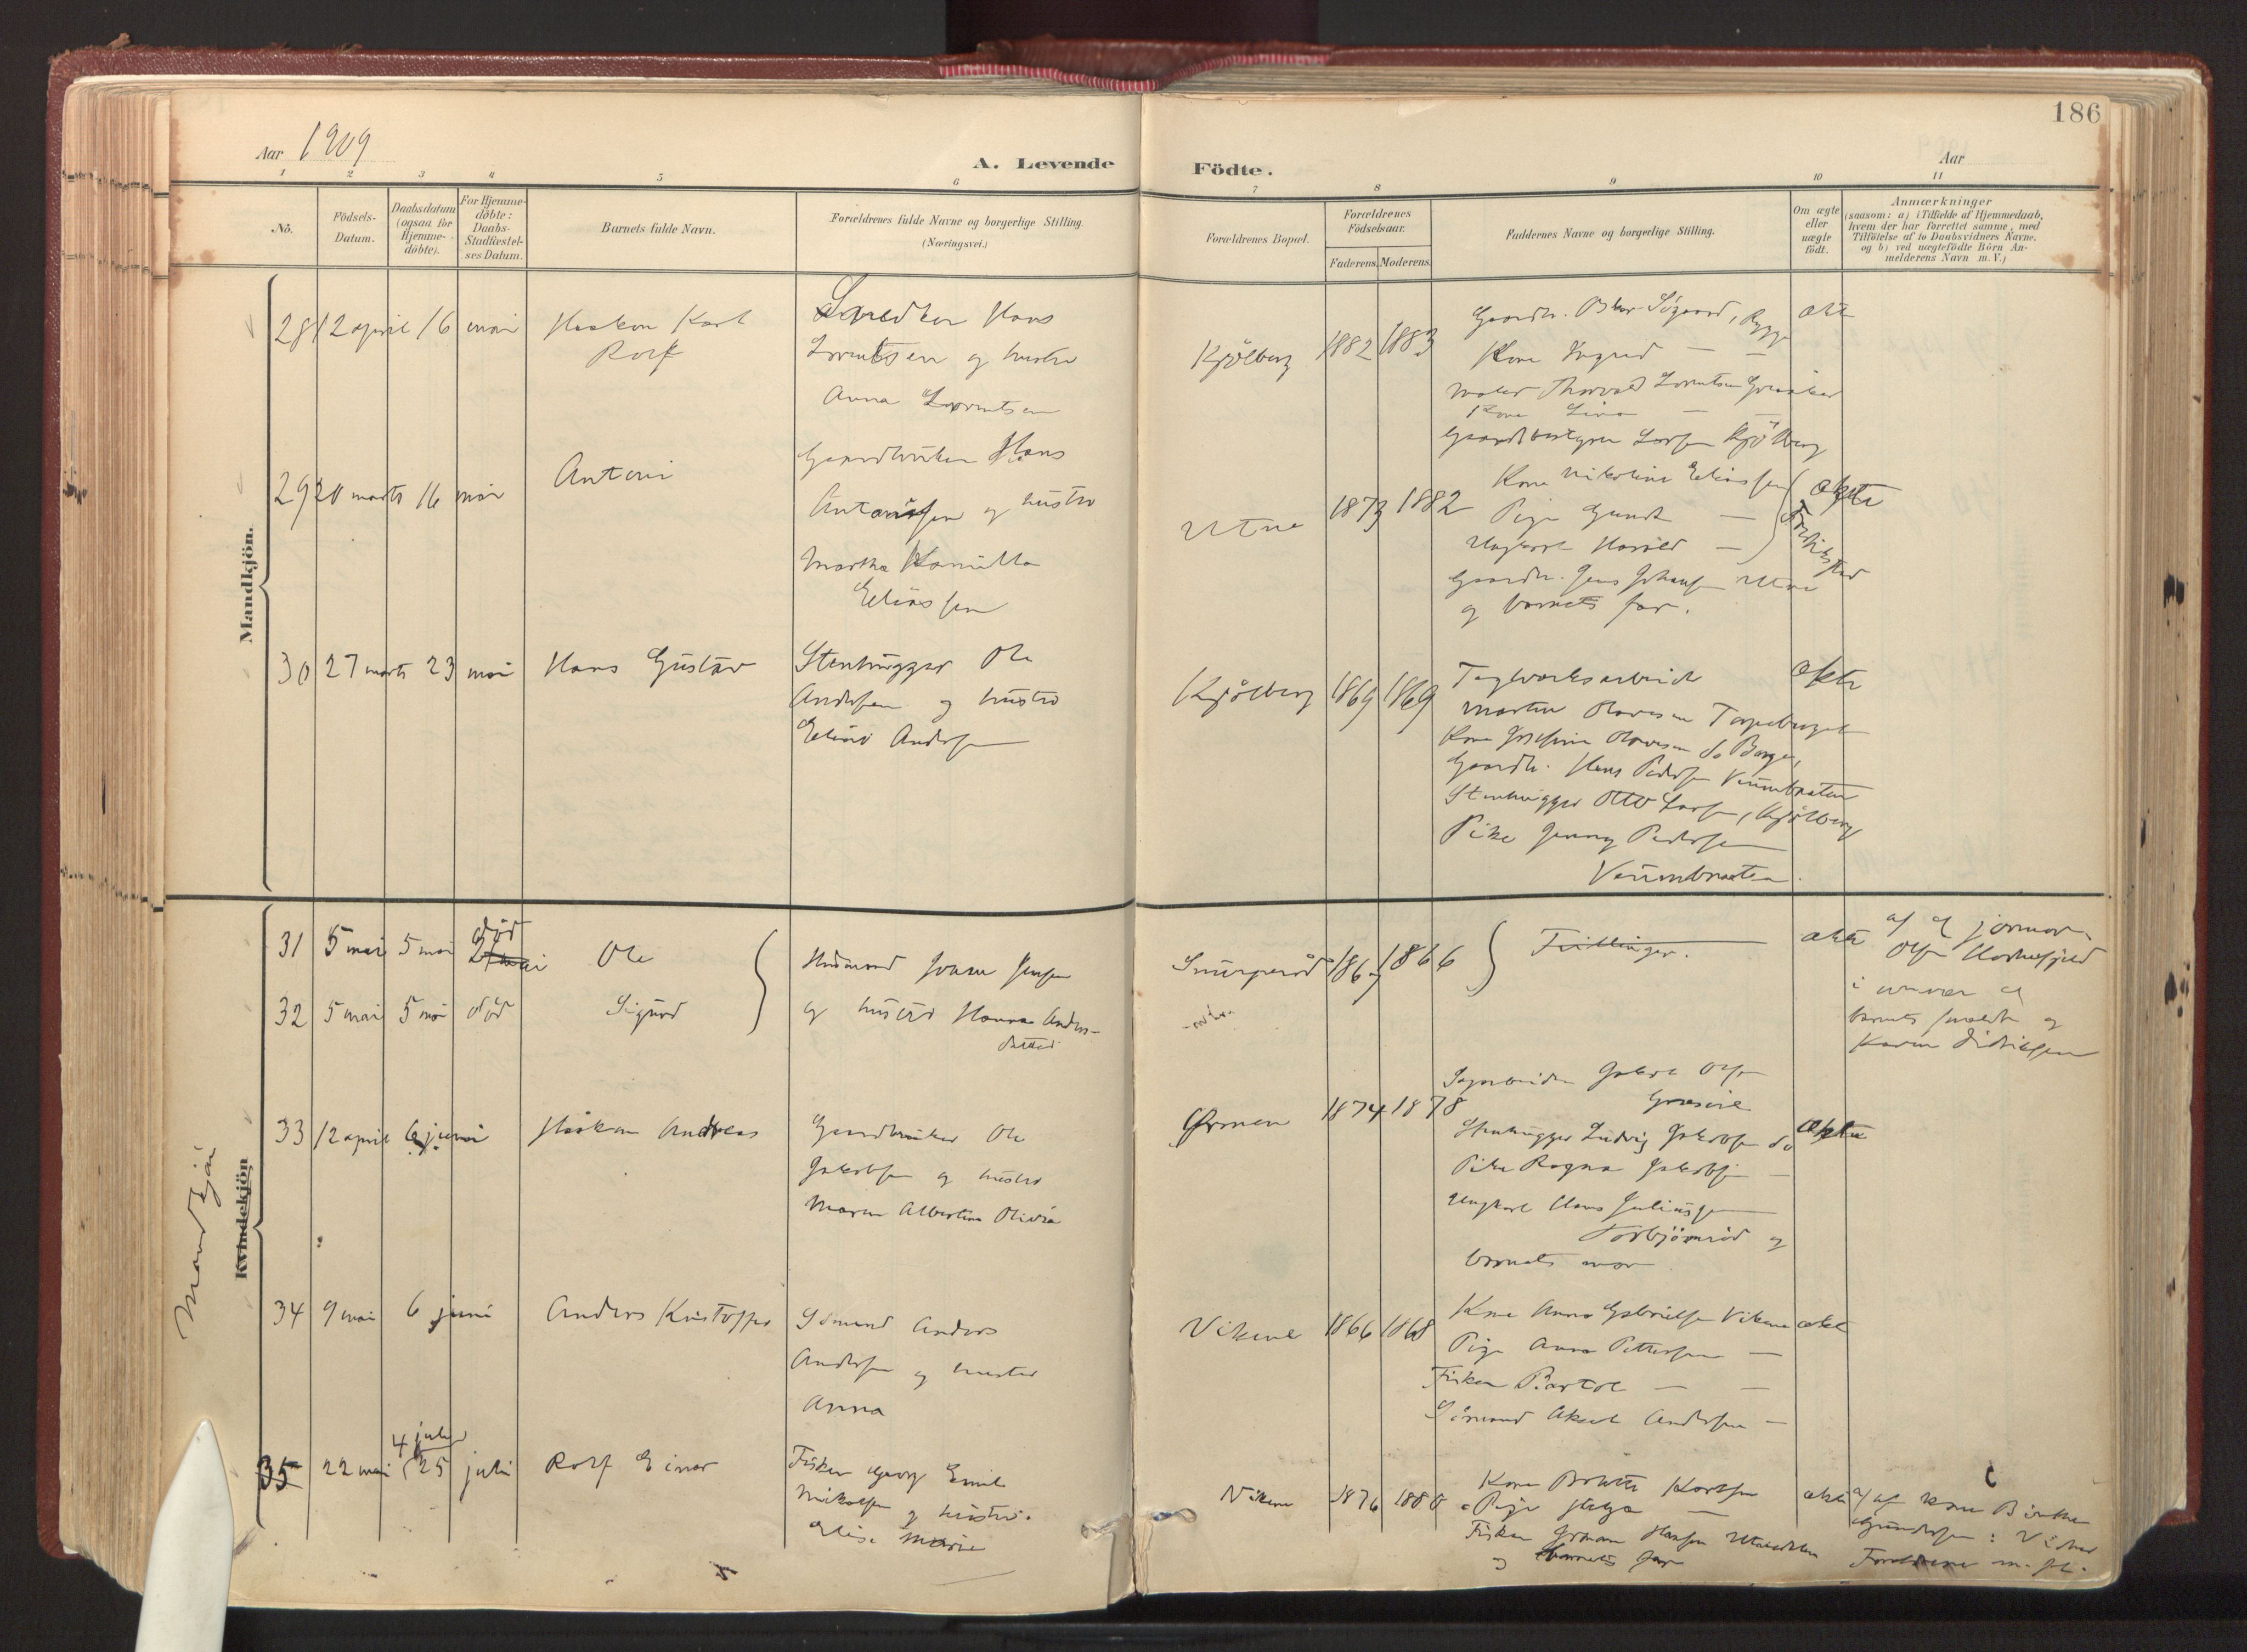 186
Aar 1909
A. Levende Födte.
Aar
1 2 3 4 5 6 7 8 9 10 11
No.
Födsels-
Datum.
Daabsdatum
(ogsaa for
Hjemme-
döbte).
For Hjemme-
döbte:
Daabs-
Stadfæstel-
ses Datum.
Barnets fulde Navn.
Forældrenes fulde Navne og borgerlige Stilling.
(Næringsvei.)
Forældrenes Bopæl.
Forældrenes
Födselsaar.
Faderens. Moderens.
Faddernes Navne og borgerlige Stilling.
Om ægte
eller
uægte
födt.
Anmærkninger
(saasom: a) i Tilfælde af Hjemmedaab,
hvem der har forrettet samme, med
Tilföielse af to Daabsvidners Navne,
og b) ved uægtefödte Börn An-
melderens Navn m. V.)
Mandkjön.
28 12 april 16 mai
Haakon Karl
Rolf
Hans
Lorentsen og hustru
Anna Lorentsen
Kjölberg
1882 1883
Gaardbr. Søgaard, Rygge
Kone Ingrid — —
Maler Thorvald Lorentsen Greaaker
Kone — —
Gaardbestyrer Larsen Kjölberg
ekte
29 20 marts 16 mai
Antoni
Gaardbruker Hans
Antonisen og hustru
Martha Kamilla
Eliassen
Utne
1873 1882
Kone Nikoline Eliassen
Pige —
Ungkarl Harald —
Fredrikstad
Gaardbr. Jens Johansen Utne
og barnets far.
ekte
30 27 marts 23 mai
Hans Gustav
Stenhugger Ole
Andersen og hustru
Andersen
Kjölberg
1869 1869
Teglverksarbeider
Martin Olavesen Torpeberget
Kone Josefine Olavesen do Borge,
Gaardbr. Hans Pedersen Veumbraaten
Stenhugger Otto Larsen, Kjölberg
Pike Jenny Pedersen
Veumbraaten.
ekte
Mandkjön
Kvindekjön
31 5 mai 5 mai död
Ole
32 5 mai 5 mai död
Sigurd
Husmand Johan Jensen
og hustru Hanna Anders-
datter
1867 1866
Tvillinger.
ekte
af jormor
Olsen
i nærvær af
barnets foreldre og
Karen Didriksen
33 12 april 6 juni
Haakon Andreas
Gaardbruker Ole
Jakobsen og hustru
Maren Albertine Olivia
Ørmen
1874 1878
Sagarbeider Jakob Olsen
Gressvik
Stenhugger Ludvig Jakobsen do
Pike Ragna Jakobsen —
Ungkarl Hans Juliussen
Torbjörnröd og
barnets mor
ekte
34 9 mai 6 juni
Anders Kristoffer
Sömand Anders
Andersen og hustru
Anna
Vikene
1866 1868
Kone Anna Gabrielsen Vikene
Pige Anna Pettersen —
Fisker Bartol — —
Sömand Aksel Andersen —
ekte
35 22 mai 4 juli
(25 juli
Rolf Einar
Fisker Georg Emil
Nikolaisen og hustru
Elise Marie
Vikene
1876 1880
Kone Karlsen
Pige Helga —
Fisker Johan Hansen
og barnets far
ekte
af kone
Gundersen: Vidner
Foreldrene m. fl.